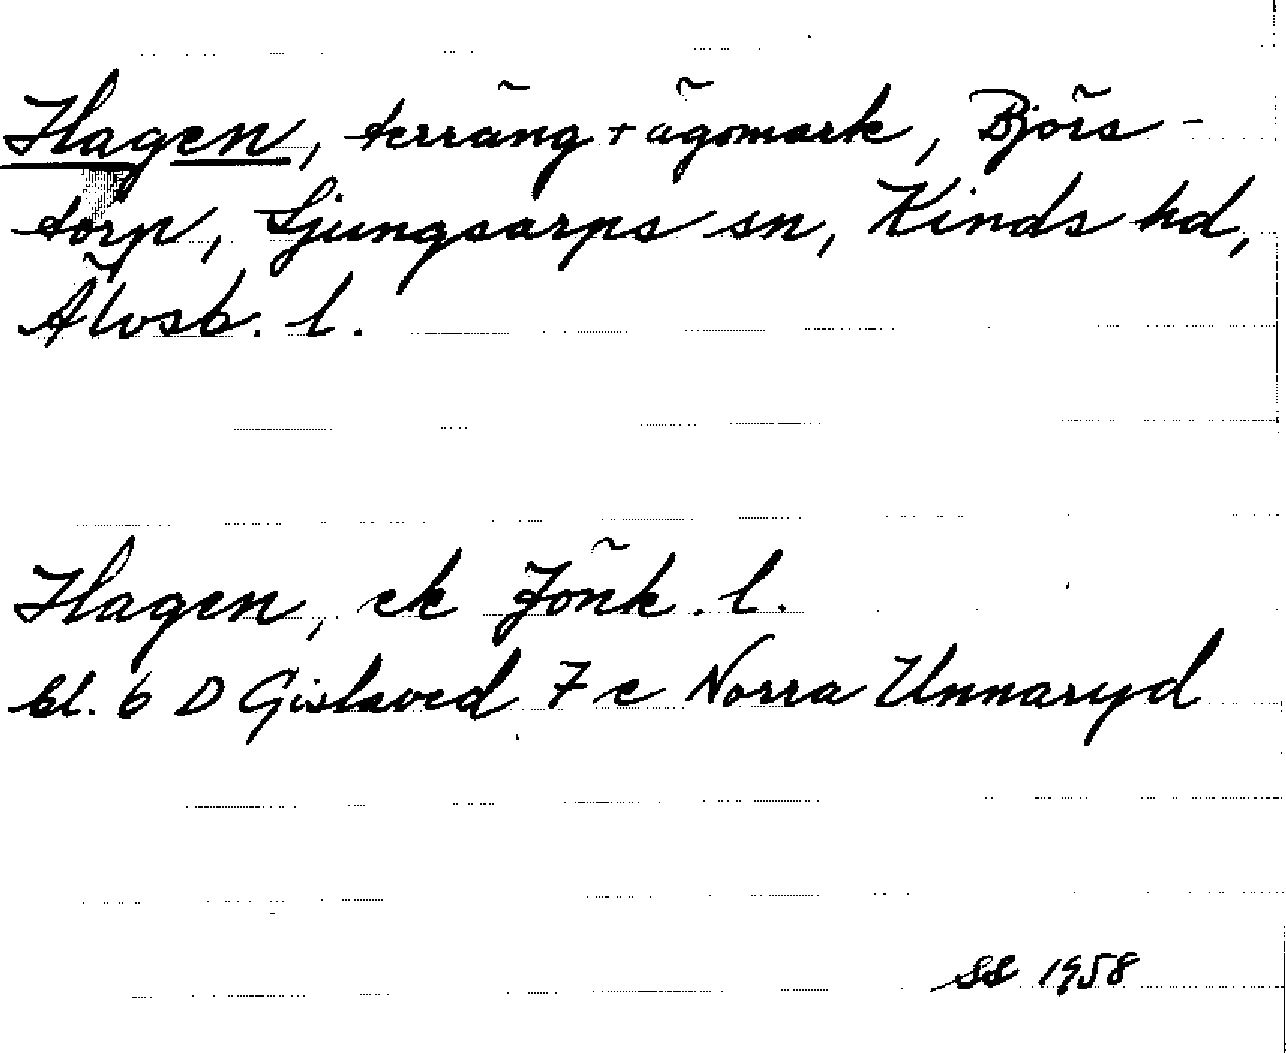 Hagen, terräng + ägomark, Björs-
torp, Ljungsarps sn, Kinds hd,
Älvsb. l.
Hagen, ek Jönk. l.
bl. 6 D Gislaved 7 c Norra Unnaryd
SS 1958